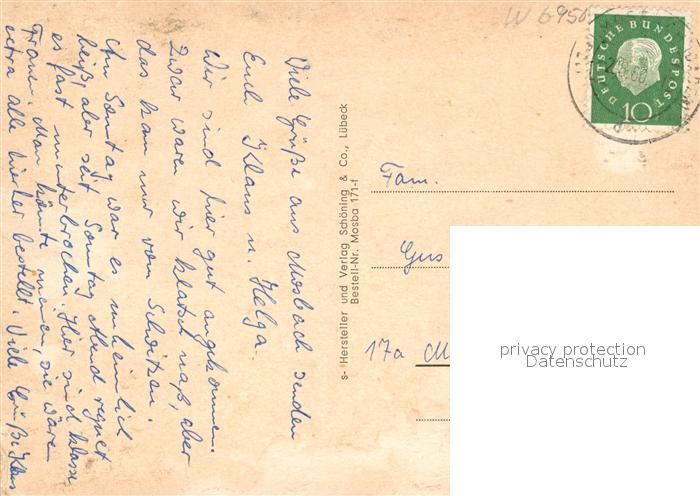 Viele Grüße aus Mosbach senden
Euch Klaus u. Helga.
Wir sind hier gut angekommen.
Zwar waren wir klatsch naß, aber
das kam nur vom Schwitzen.
Am Sonntag war es unheimlich
heiß, aber seit Sonntag Abend regnet
es fast ununterbrochen. Hier sind klasse
Frauen. Man könnte meinen, sie wären
extra alle hierher bestellt. Viele Grüße Klaus
s- Hersteller und Verlag Schöning & Co., Lübeck
Bestell-Nr. Mosba 171-f
W 6950
DEUTSCHE BUNDESPOST
10
Fam.
Gus
17a M
privacy protection
Datenschutz